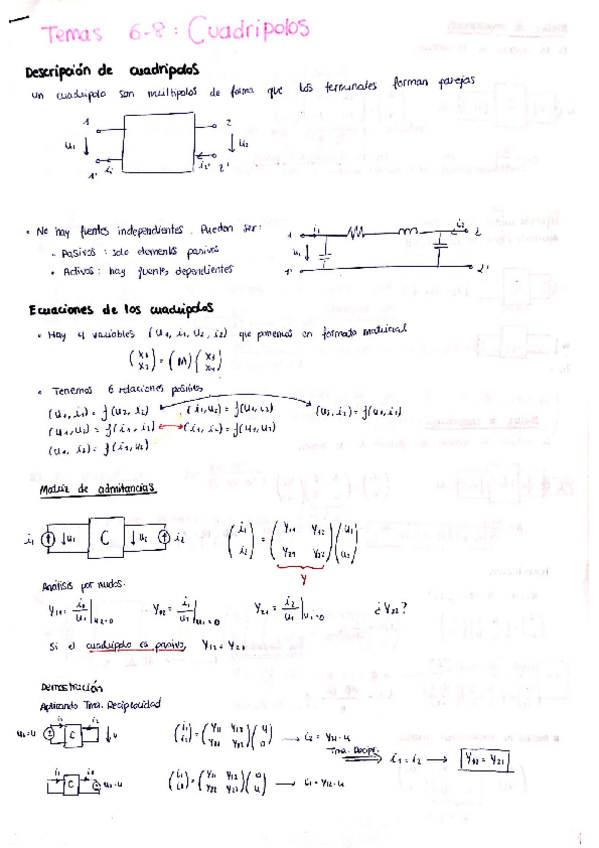 Temas 6-8: Cuadripolos
Descripción de cuadripolos
un cuadripolo son multipolos de forma que los terminales forman parejas
1 2
u₁ u₂
1' i₁ i₂' 2'
• No hay fuentes independientes. Pueden ser:
• Pasivos: solo elementos pasivos
• Activos: hay fuentes dependientes
1 i₁ i₂ 2
u₁
1' 2'
Ecuaciones de los cuadripolos
• Hay 4 variables (u₁, i₁, u₂, i₂) que ponemos en formato matricial
(x₁ x₂) = (M) (x₃ x₄)
• Tenemos 6 relaciones posibles
(u₁, i₁) = f(u₂, i₂) (i₁, u₂) = f(u₁, i₂) (u₂, i₂) = f(u₁, i₁)
(u₁, u₂) = f(i₁, i₂) (i₁, i₂) = f(u₁, u₂)
(u₁, i₂) = f(i₁, u₂)
Matriz de admitancias
i₁ u₁ C u₂ i₂ (i₁ i₂) = (Y₁₁ Y₁₂ Y₂₁ Y₂₂) (u₁ u₂)
Y
Análisis por nudos:
Y₁₁ = i₁/u₁ |u₂=0 Y₁₂ = i₁/u₂ |u₁=0 Y₂₁ = i₂/u₁ |u₂=0 ¿Y₂₂?
Si el cuadripolo es pasivo, Y₁₂ = Y₂₁
Demostración
Aplicando Tma. Reciprocidad
u₁=u i₁ C i₂ u (i₁ i₂) = (Y₁₁ Y₁₂ Y₂₁ Y₂₂) (u 0) → i₂ = Y₂₁·u
Tma. Recipr. i₁ = i₂ → Y₁₂ = Y₂₁
i₁ C i₂ u₂=u (i₁ i₂) = (Y₁₁ Y₁₂ Y₂₁ Y₂₂) (0 u) → i₁ = Y₁₂·u